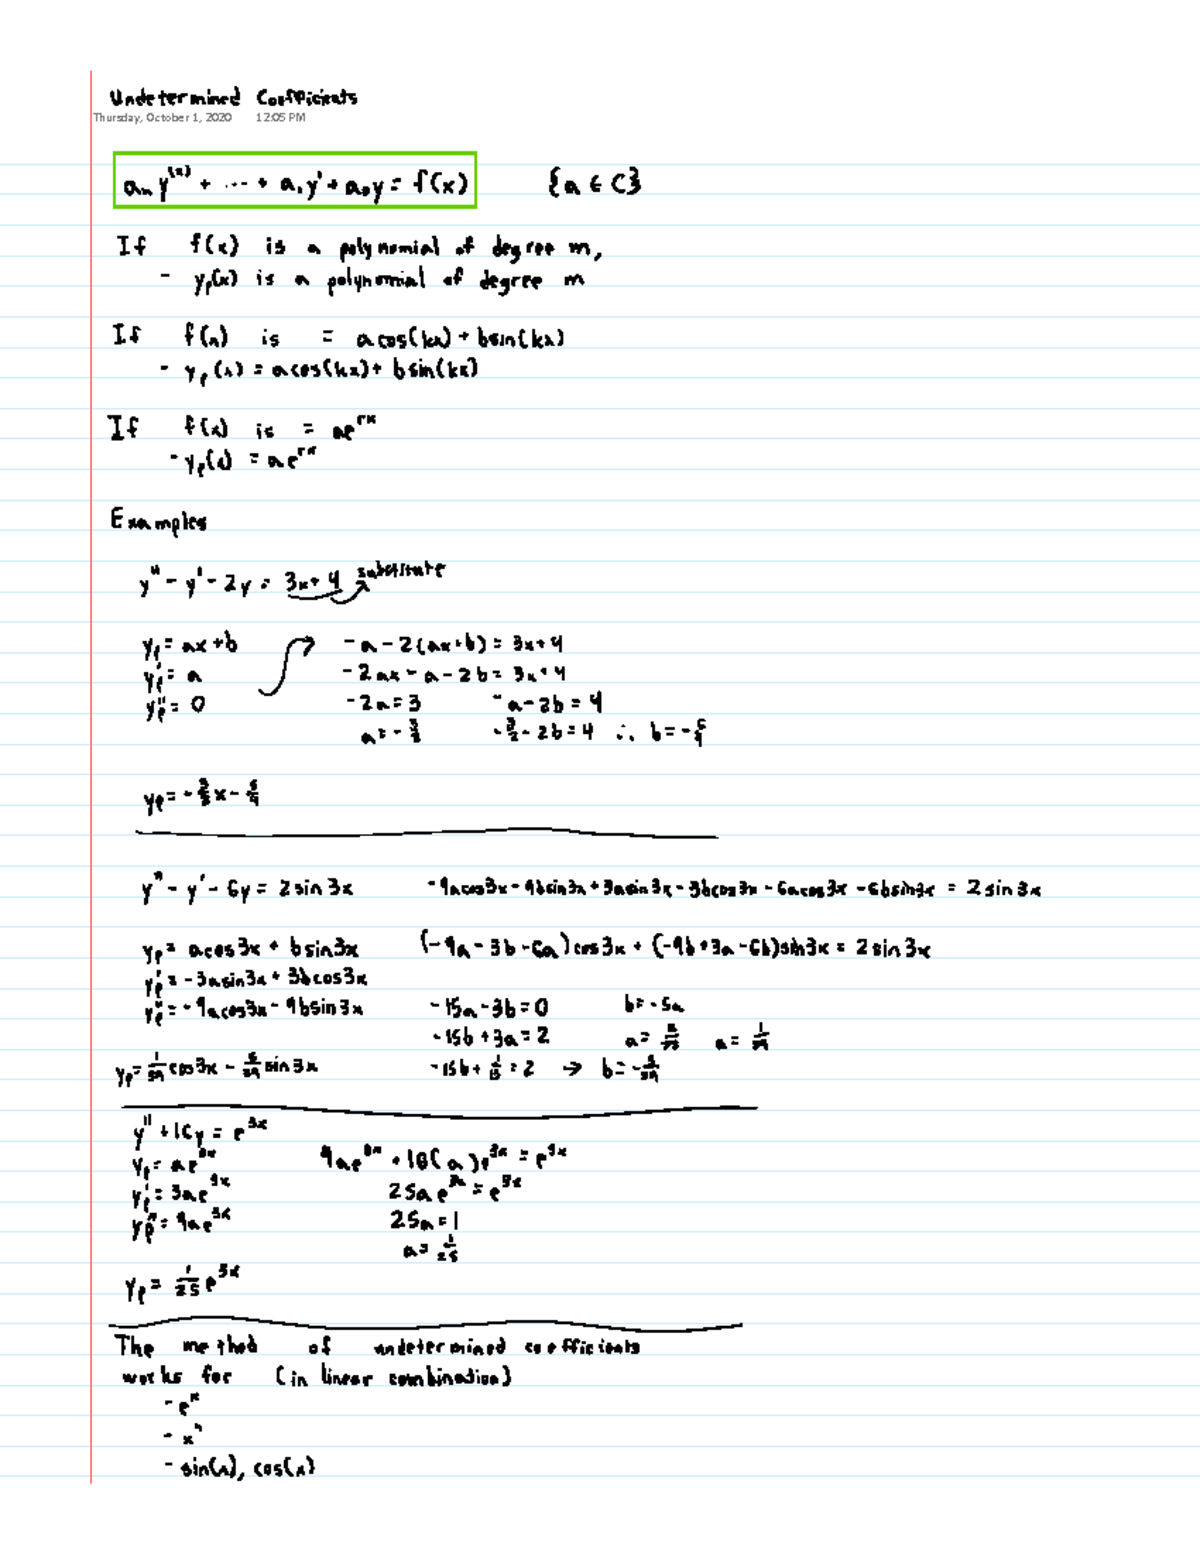 Undetermined Coefficients
Thursday, October 1, 2020 12:05 PM
aₙ y⁽ⁿ⁾ + ... + a₁y' + a₀y = f(x) {a ∈ C}
If f(x) is a polynomial of degree m,
- yₚ(x) is a polynomial of degree m
If f(x) is = acos(kx) + bsin(kx)
- yₚ(x) = acos(kx) + bsin(kx)
If f(x) is = ae^(rx)
- yₚ(x) = ae^(rx)
Examples
y'' - y' - 2y = 3x + 4 substitute
yₚ = ax + b - a - 2(ax+b) = 3x + 4
yₚ' = a - 2ax - a - 2b = 3x + 4
yₚ'' = 0 - 2a = 3 - a - 2b = 4
a = - 3/2 - 3/2 - 2b = 4 ∴ b = -
yₚ = - 3/2 x - 5/4
y'' - y' - 6y = 2 sin 3x - 9acos3x - 9bsin3x + 3asin3x - 3bcos3x - 6acos3x - 6bsin3x = 2 sin 3x
yₚ = acos3x + bsin3x (-9a - 3b - 6a) cos3x + (-9b + 3a - 6b) sin3x = 2 sin3x
yₚ' = - 3asin3x + 3bcos3x
yₚ'' = - 9acos3x - 9bsin3x - 15a - 3b = 0 b = - 5a
- 15b + 3a = 2 a = a = 1/39
yₚ = 1/39 cos3x - 5/39 sin3x - 15b + 1/13 = 2 → b = - 5/39
y'' + 16y = e^(3x)
yₚ = ae^(3x) 9ae^(3x) + 16(a)e^(3x) = e^(3x)
yₚ' = 3ae^(3x) 25ae^(3x) = e^(3x)
yₚ'' = 9ae^(3x) 25a = 1
a = 1/25
yₚ = 1/25 e^(3x)
The method of undetermined coefficients
works for (in linear combination)
- e^x
- xⁿ
- sin(x), cos(x)